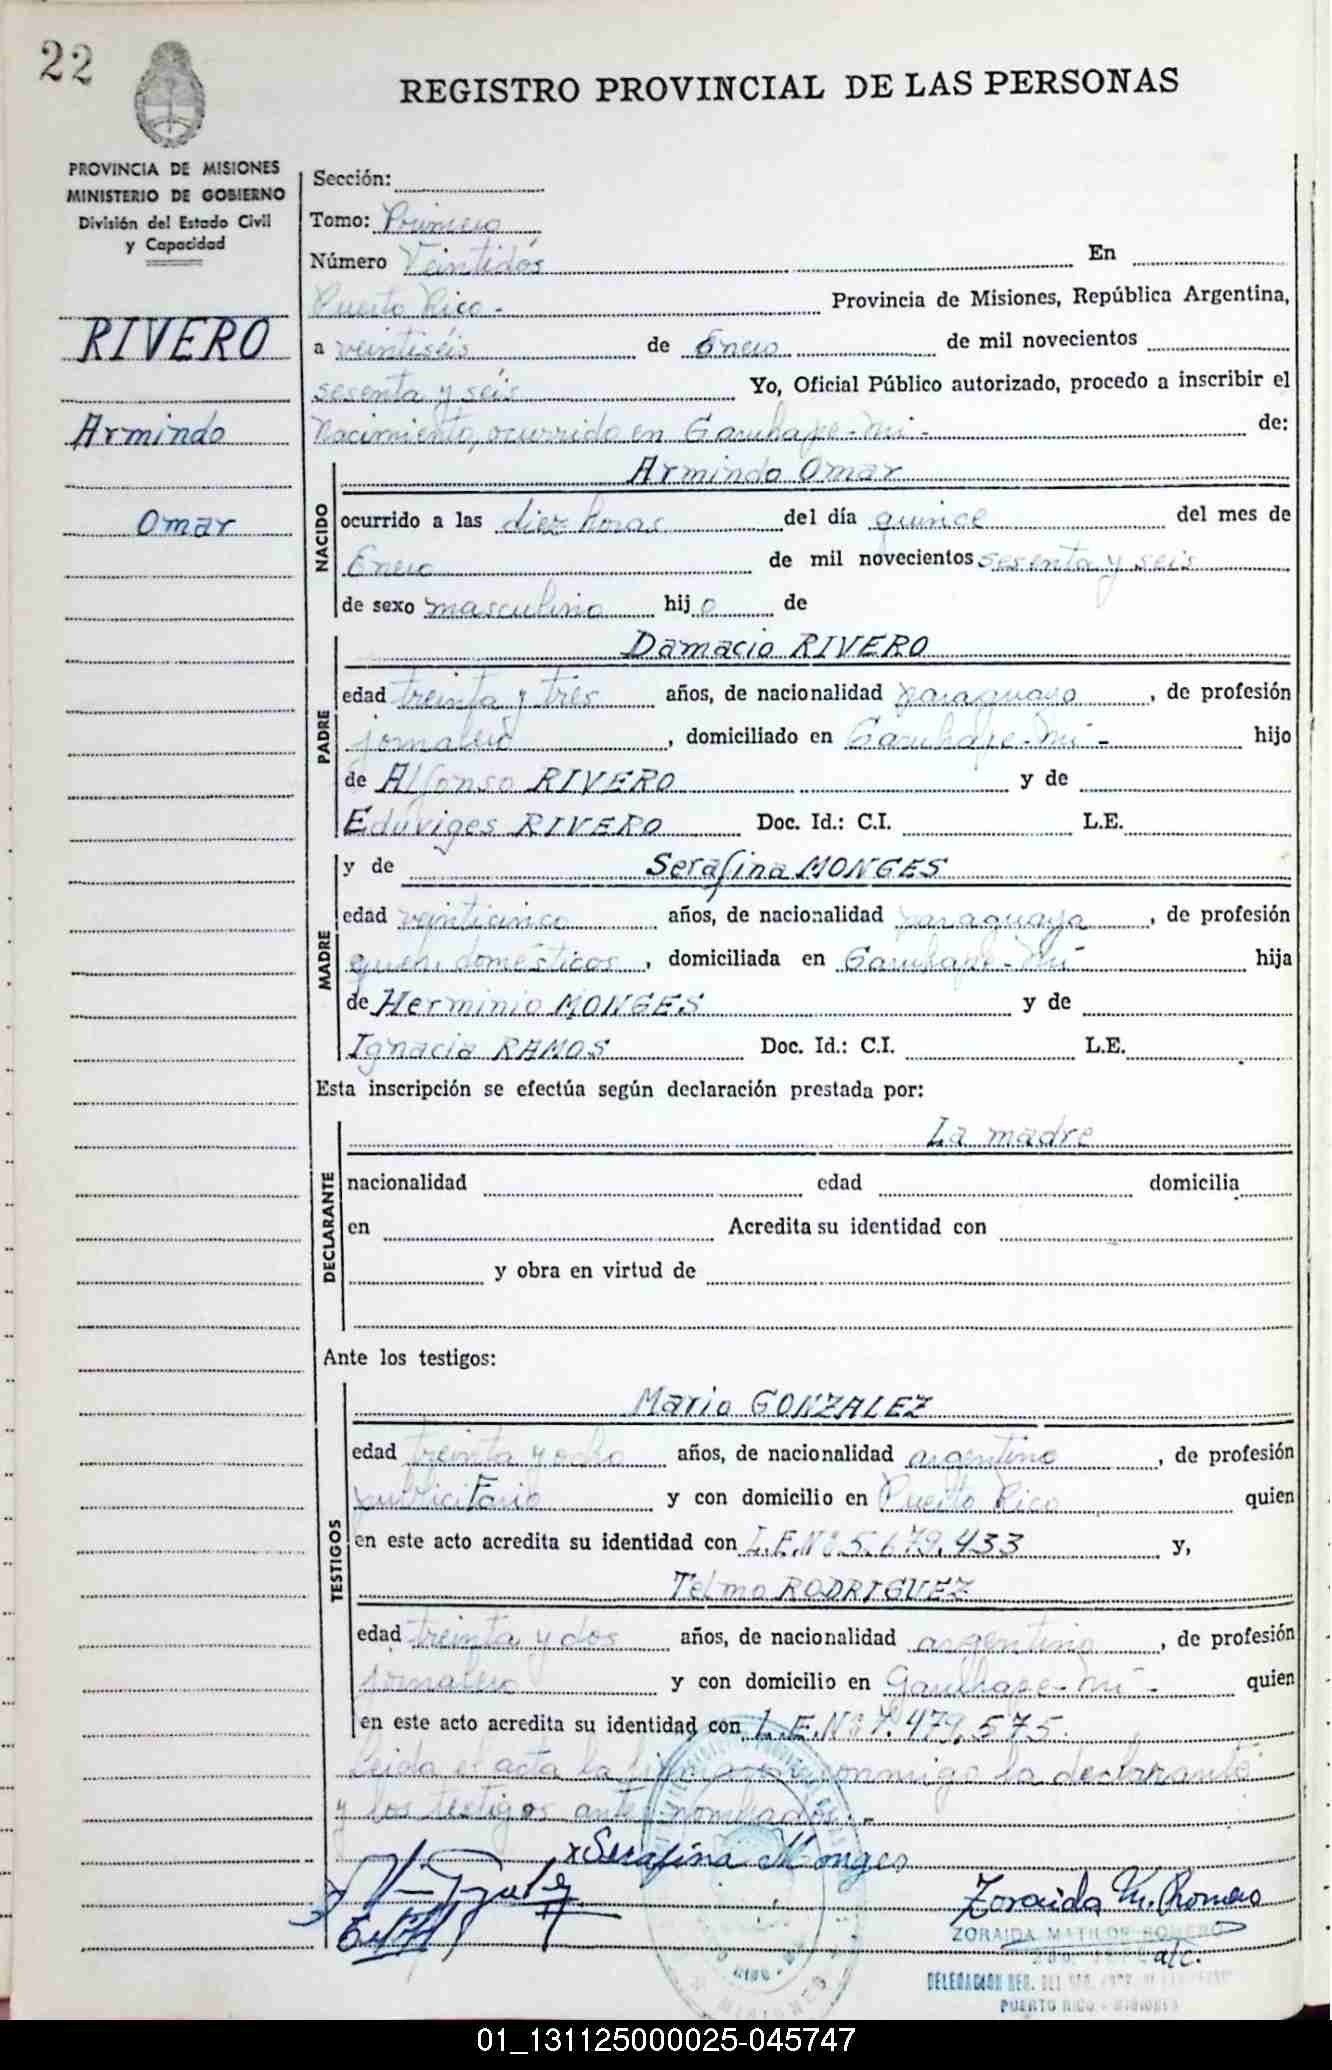 22
REGISTRO PROVINCIAL DE LAS PERSONAS
PROVINCIA DE MISIONES
MINISTERIO DE GOBIERNO
División del Estado Civil
y Capacidad
RIVERO
Armindo
Omar
Sección:
Tomo: Primero
Número Veintidós En
Puerto Rico - Provincia de Misiones, República Argentina,
a veintiséis de Enero de mil novecientos
sesenta y seis Yo, Oficial Público autorizado, procedo a inscribir el
Nacimiento, ocurrido en Garuhape-Mí- de:
NACIDO
Armindo Omar
ocurrido a las diez horas del día quince del mes de
Enero de mil novecientos sesenta y seis
de sexo masculino hijo de
PADRE
Damacio RIVERO
edad treinta y tres años, de nacionalidad paraguayo, de profesión
jornalero, domiciliado en Garuhape-Mí- hijo
de Alfonso RIVERO y de
Eduviges RIVERO Doc. Id.: C.I. L.E.
MADRE
y de Serafina MONGES
edad veinticinco años, de nacionalidad paraguaya, de profesión
queh. domésticos, domiciliada en Garuhape-Mí hija
de Herminio MONGES y de
Ignacia RAMOS Doc. Id.: C.I. L.E.
Esta inscripción se efectúa según declaración prestada por:
DECLARANTE
La madre
nacionalidad edad domicilia
en Acredita su identidad con
y obra en virtud de
Ante los testigos:
TESTIGOS
Mario GONZALEZ
edad treinta y ocho años, de nacionalidad argentino, de profesión
publicitario y con domicilio en Puerto Rico quien
en este acto acredita su identidad con L.E.Nº 5.679.433 y,
Telmo RODRIGUEZ
edad treinta y dos años, de nacionalidad argentino, de profesión
jornalero y con domicilio en Garuhape-Mí- quien
en este acto acredita su identidad con L.E.Nº 7.479.575.
Leída el acta la firman conmigo la declarante
y los testigos antes nombrados.-
x Serafina Monges
Zoraida M. Romero
ZORAIDA MATILDE ROMERO
a/c.
DELEGACION REG. DEL
PUERTO RICO - MISIONES
01_131125000025-045747